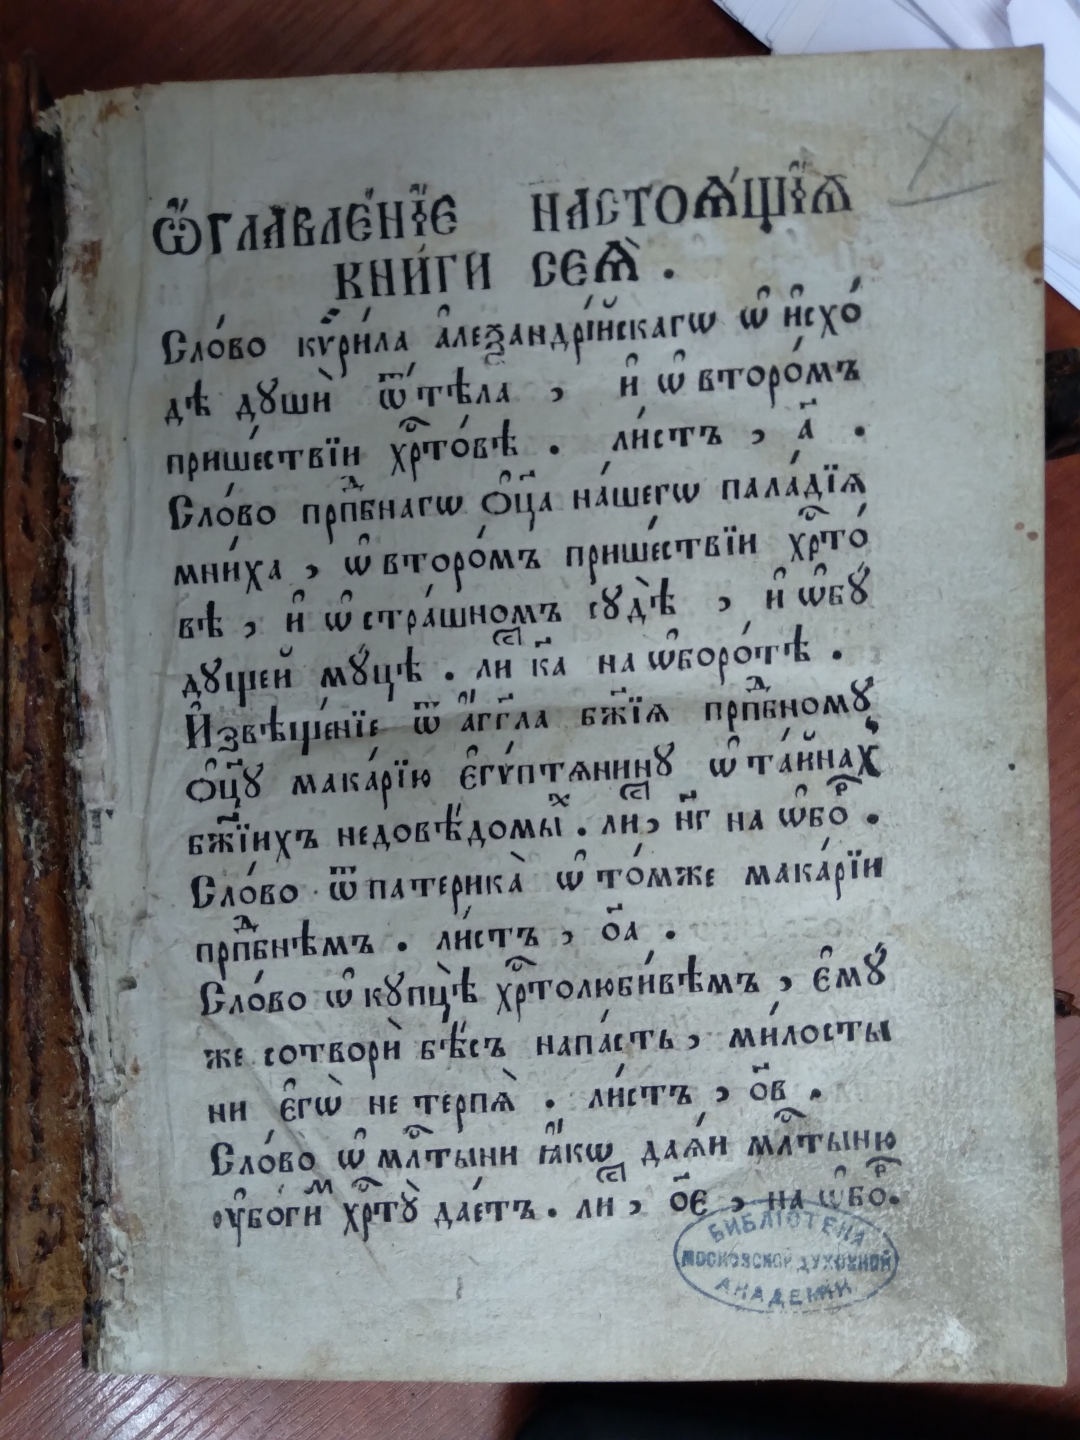 Ѡ҆́главле́нїе настоѧ́щїѧ
кни́ги сеѧ̀ .
Сло́во кѷри́ла а҆леѯандрі́йскагѡ ѡ҆ и҆схо́
дѣ дꙋшѝ ѿ тѣ́ла , и҆ ѡ҆ второ́мъ
прише́ствїи хрⷭ҇то́вѣ . ли́стъ , а҃ .
Сло́во прпⷣбнагѡ ѻ҆ц҃а на́шегѡ пала́дїѧ
мни́ха , ѡ҆ второ́мъ прише́ствїи хрⷭ҇то́
вѣ , и҆ ѡ҆ стра́шномъ сꙋдѣ̀ , и҆ ѡ҆ бꙋ́
дꙋщей мꙋ́цѣ . лиⷭ҇ к҃а на ѡ҆боро́тѣ .
И҆звѣще́нїе ѿ а҆́гг҃ла бж҃їѧ прпⷣбномꙋ
ѻ҆ц҃ꙋ мака́рїю є҆гѵ́птѧнинꙋ ѡ҆ та́йнахъ
бж҃їихъ недовѣ́домыⷯ . лиⷭ҇, н҃г на ѡ҆боⷬ҇ .
Сло́во ѿ патерика̀ ѡ҆ то́мже мака́рїи
прпⷣбнѣмъ . ли́стъ , о҃а .
Сло́во ѡ҆ кꙋпцѣ̀ хрⷭ҇толюби́вѣмъ , є҆мꙋ́
же сотворѝ бѣ́съ напа́сть , ми́лосты
ни є҆гѡ̀ не терпѧ̀ . ли́стъ , о҃в .
Сло́во ѡ҆ млⷭ҇тыни ꙗ҆́кѡ даѧ́и млⷭ҇тыню
ᲂу҆бо́гиⷨ хрⷭ҇тꙋ̀ дае́тъ . лиⷭ҇ , о҃є , на ѡ҆боⷬ҇ .
БИБЛІОТЕКА
МОСКОВСКОЙ ДУХОВНОЙ
АКАДЕМІИ